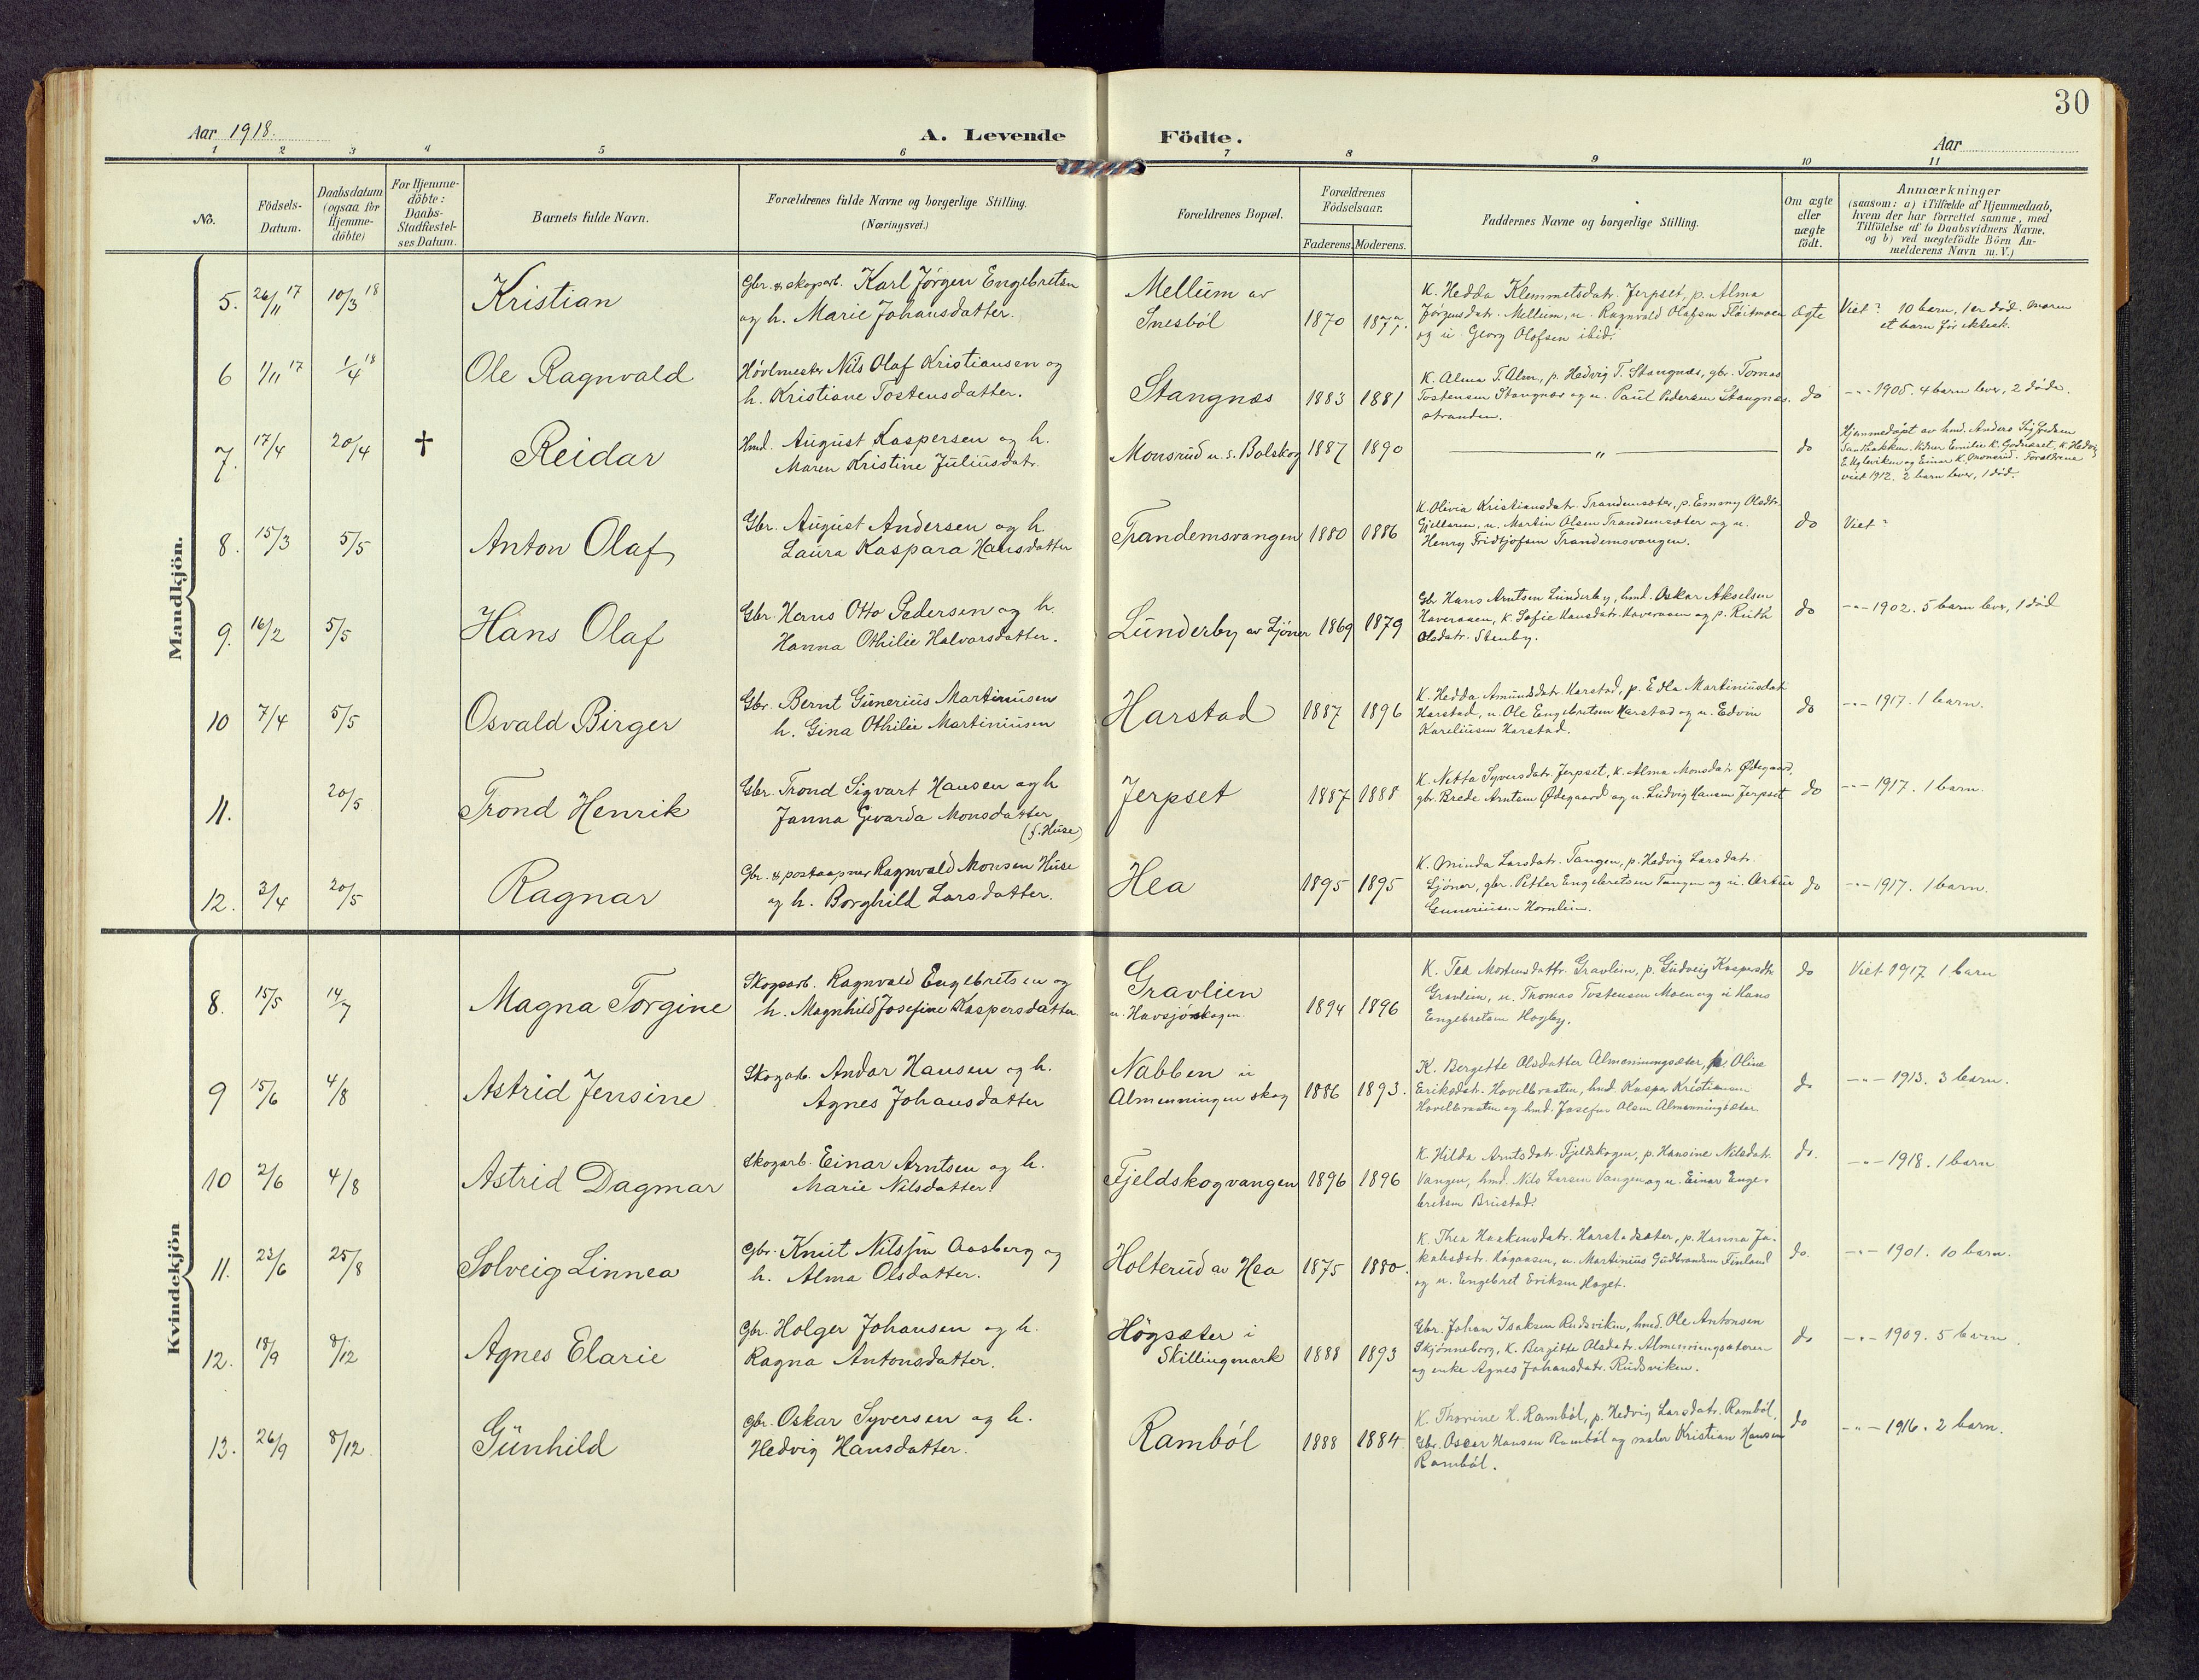 30
Aar 1918.
A. Levende Födte.
Aar
1 2 3 4 5 6 7 8 9 10 11
No.
Födsels-
Datum.
Daabsdatum
(ogsaa for
Hjemme-
döbte)
For Hjemme-
döbte:
Daabs-
Stadfæstel-
ses Datum.
Barnets fulde Navn.
Forældrenes fulde Navne og borgerlige Stilling.
(Næringsvei.)
Forældrenes Bopæl.
Forældrenes
Födselsaar.
Faderens. Moderens.
Faddernes Navne og borgerlige Stilling.
Om ægte
eller
uægte
födt.
Anmærkninger
(saasom: a) i Tilfælde af Hjemmedaab,
hvem der har forrettet samme, med
Tilföielse af to Daabsvidners Navne.
og b) ved uægtefödte Börn An-
melderens Navn m. V.)
Mandkjön.
5. 26/11 17 10/3 18 Kristian
Gbr. & skogarb. Karl Jørgen Engebretsen
og h. Marie Johansdatter.
Mellum av
Snesböl
1870
K. Hedda Klemmetsdatr. Jerpset, p. Alma
Jørgensdatr. Mellum, u. Ragnvald Olafsen Fløitmoen
og u Georg Olofsen ibid.
Ægte
Viet? 10 barn, 1 er död. Moren
et barn för ektesk.
6 1/11 17 1/4 18 Ole Ragnvald
Hövlmester Nils Olaf Kristiansen og
h. Kristiane Tostensdatter.
Stangnæs 1883 1881
K. Alma T. Alm, p. Hedvig T. Stangnæs, gbr. Tomas
Tostensen Stangnæs og u. Paul Pedersen Stangnæs.
stranden.
do
-"- 1905. 4 barn lever, 2 döde.
7. 17/4 20/4 † Reidar
Hmd. August Kaspersen og h.
Maren Kristine Juliusdatr.
Monsrud u. s. Bolskog 1887 1890
"
do
Hjemmedöpt av hmd. Anders Sigfredsen
Sandbakken. Vidner Emilie K. Godnæset, K. Hedvig
E. Ugleviken og Einar K. Monsrud. Forældrene
viet 1912. 2 barn lever, 1 död.
8. 15/3 5/5 Anton Olaf
Gbr. August Andersen og h.
Laura Kaspara Hansdatter
Trandemsvangen 1880 1886
K. Olivia Kristiansdatr. Trandemsæter, p. Emmy Olsdtr.
Gjellaren, u. Martin Olsen Trandemsæter og u.
Henry Fridtjofsen Trandemsvangen.
do
Viet?
9. 16/2 5/5 Hans Olaf
Gbr. Hans Otto Pedersen og h.
Hanna Othilie Halvorsdatter.
Lunderby av Ljöner 1869 1879
Gbr Hans Arntsen Lunderby, hmd. Oskar Akselsen
Haveraaen, K. Sofie Hansdatr. Haveraaen og p. Ruth
Olsdatr. Stenby.
do
-"- 1902. 5 barn lever, 1 död
10 7/4 5/5 Osvald Birger
Gbr. Bernt Gunerius Martiniusen
h. Gina Othilie Martiniusen
Harstad 1887 1896
K. Hedda Amundsdatr. Harstad, p. Edla Martiniusdatr
Harstad, u. Ole Engebretsen Harstad og u. Edvin
Kareliusen Harstad.
do
-"- 1917. 1 barn.
11. 20/5 Trond Henrik
Gbr. Trond Sigvart Hansen og h
Janna Gevarda Monsdatter
(f. Huse)
Jerpset 1887 1888
K. Netta Syversdatr. Jerpset, K. Alma Monsdatr. Ødegaard,
gbr. Brede Arntsen Ødegaard og u. Ludvig Hansen Jerpset
do
-"- 1917. 1 barn.
12. 3/4 20/5 Ragnar
Gbr. & postaapner Ragnvald Monsen Huse
og h. Borghild Larsdatter.
Hea 1895 1895
K. Minda Larsdatr. Tangen, p. Hedvig Larsdatr.
Ljöner, gbr. Petter Engebretsen Tangen og u. Artur
Guneriusen Hornlien.
do
-"- 1917. 1 barn.
Kvindekjön
8. 15/5 14/7 Magna Torgine
Skogarb. Ragnvald Engebretsen og
h. Magnhild Josefine Kaspersdatter
Gravlien
u. Havsjöskogen.
1894 1896
K. Tea Mortensdattr. Gravlien, p. Gudveig Kaspersdtr
Gravlien, u. Thomas Tostensen Moen og u Hans
Engebretsen Hogby.
do
Viet 1917 1 barn
9 15/6 4/8 Astrid Jensine
Skogarb. Andor Hansen og h.
Agnes Johansdatter
Nabben u
Almenningen skog 1886 1893.
K. Bergitte Olsdatter Almenningsæter, p. Oline
Eriksdatr. Hovelbraaten, hmd. Kaspar Kristiansen
Hovelbraaten og hmd. Josefus Olsen Almenningsæter.
do
-"- 1913. 3 barn.
10 2/6 4/8 Astrid Dagmar
Skogarb. Einar Arntsen og h.
Marie Nilsdatter.
Fjeldskogvangen 1896 1896
K. Hilda Arntsdatr. Fjeldskogen, p. Hansine Nilsdatr.
Vangen, hmd. Nils Larsen Vangen og u. Einar Enge-
bretsen Brustad.
do.
-"- 1918. 1 barn
11. 23/6 25/8 Solveig Linnea
Gbr. Knut Nilssen Aasberg og
h. Alma Olsdatter.
Holterud av Hea 1875 1880.
K. Thea Haakensdatr. Harstadsæter, p. Hanna Ja-
kobsdatr. Högaasen, u. Martinius Gudbrandsen Finland
og u. Engebret Eriksen Haget.
do.
-"- 1901. 10 barn.
12. 18/9 8/12 Agnes Elarie
Gbr. Holger Johansen og h.
Ragna Antonsdatter.
Högsæter i
Skillingmark 1888 1893
Gbr. Johan Isaksen Rudsviken, hmd. Ole Antonsen
Skjönneborg, K. Bergitte Olsdatr. Almenningsæteren
og enke Agnes Johansdatr. Rudsviken.
do
-"- 1909. 5 barn.
13. 26/9 8/12 Gunhild
Gbr. Oskar Syversen og h.
Hedvig Hansdatter.
Ramböl 1888 1884.
K. Thorine H. Ramböl, p. Hedvig Larsdatr. Ramböl,
Gbr. Oscar Hansen Ramböl og maler Kristian Hansen
Ramböl.
do
-"- 1916. 2 barn.